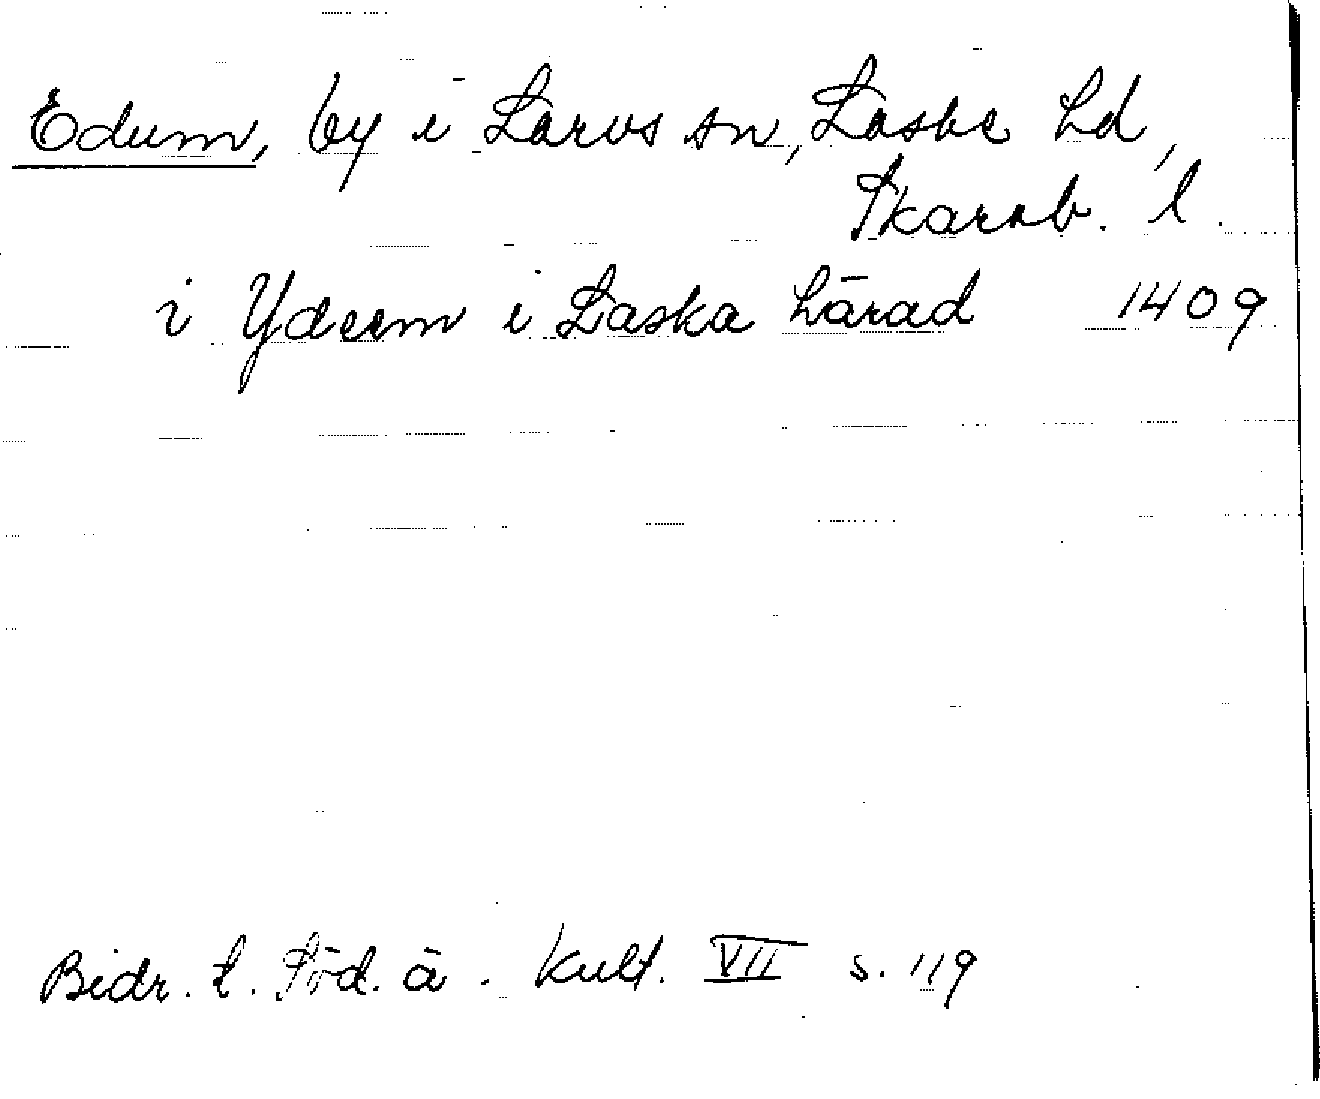 Edum, by i Larvs sn, Laske hd,
Skarab. l.
i Ydeem i Laska härad 1409
Bidr. t. Söd. ä. Kult. VII s. 119